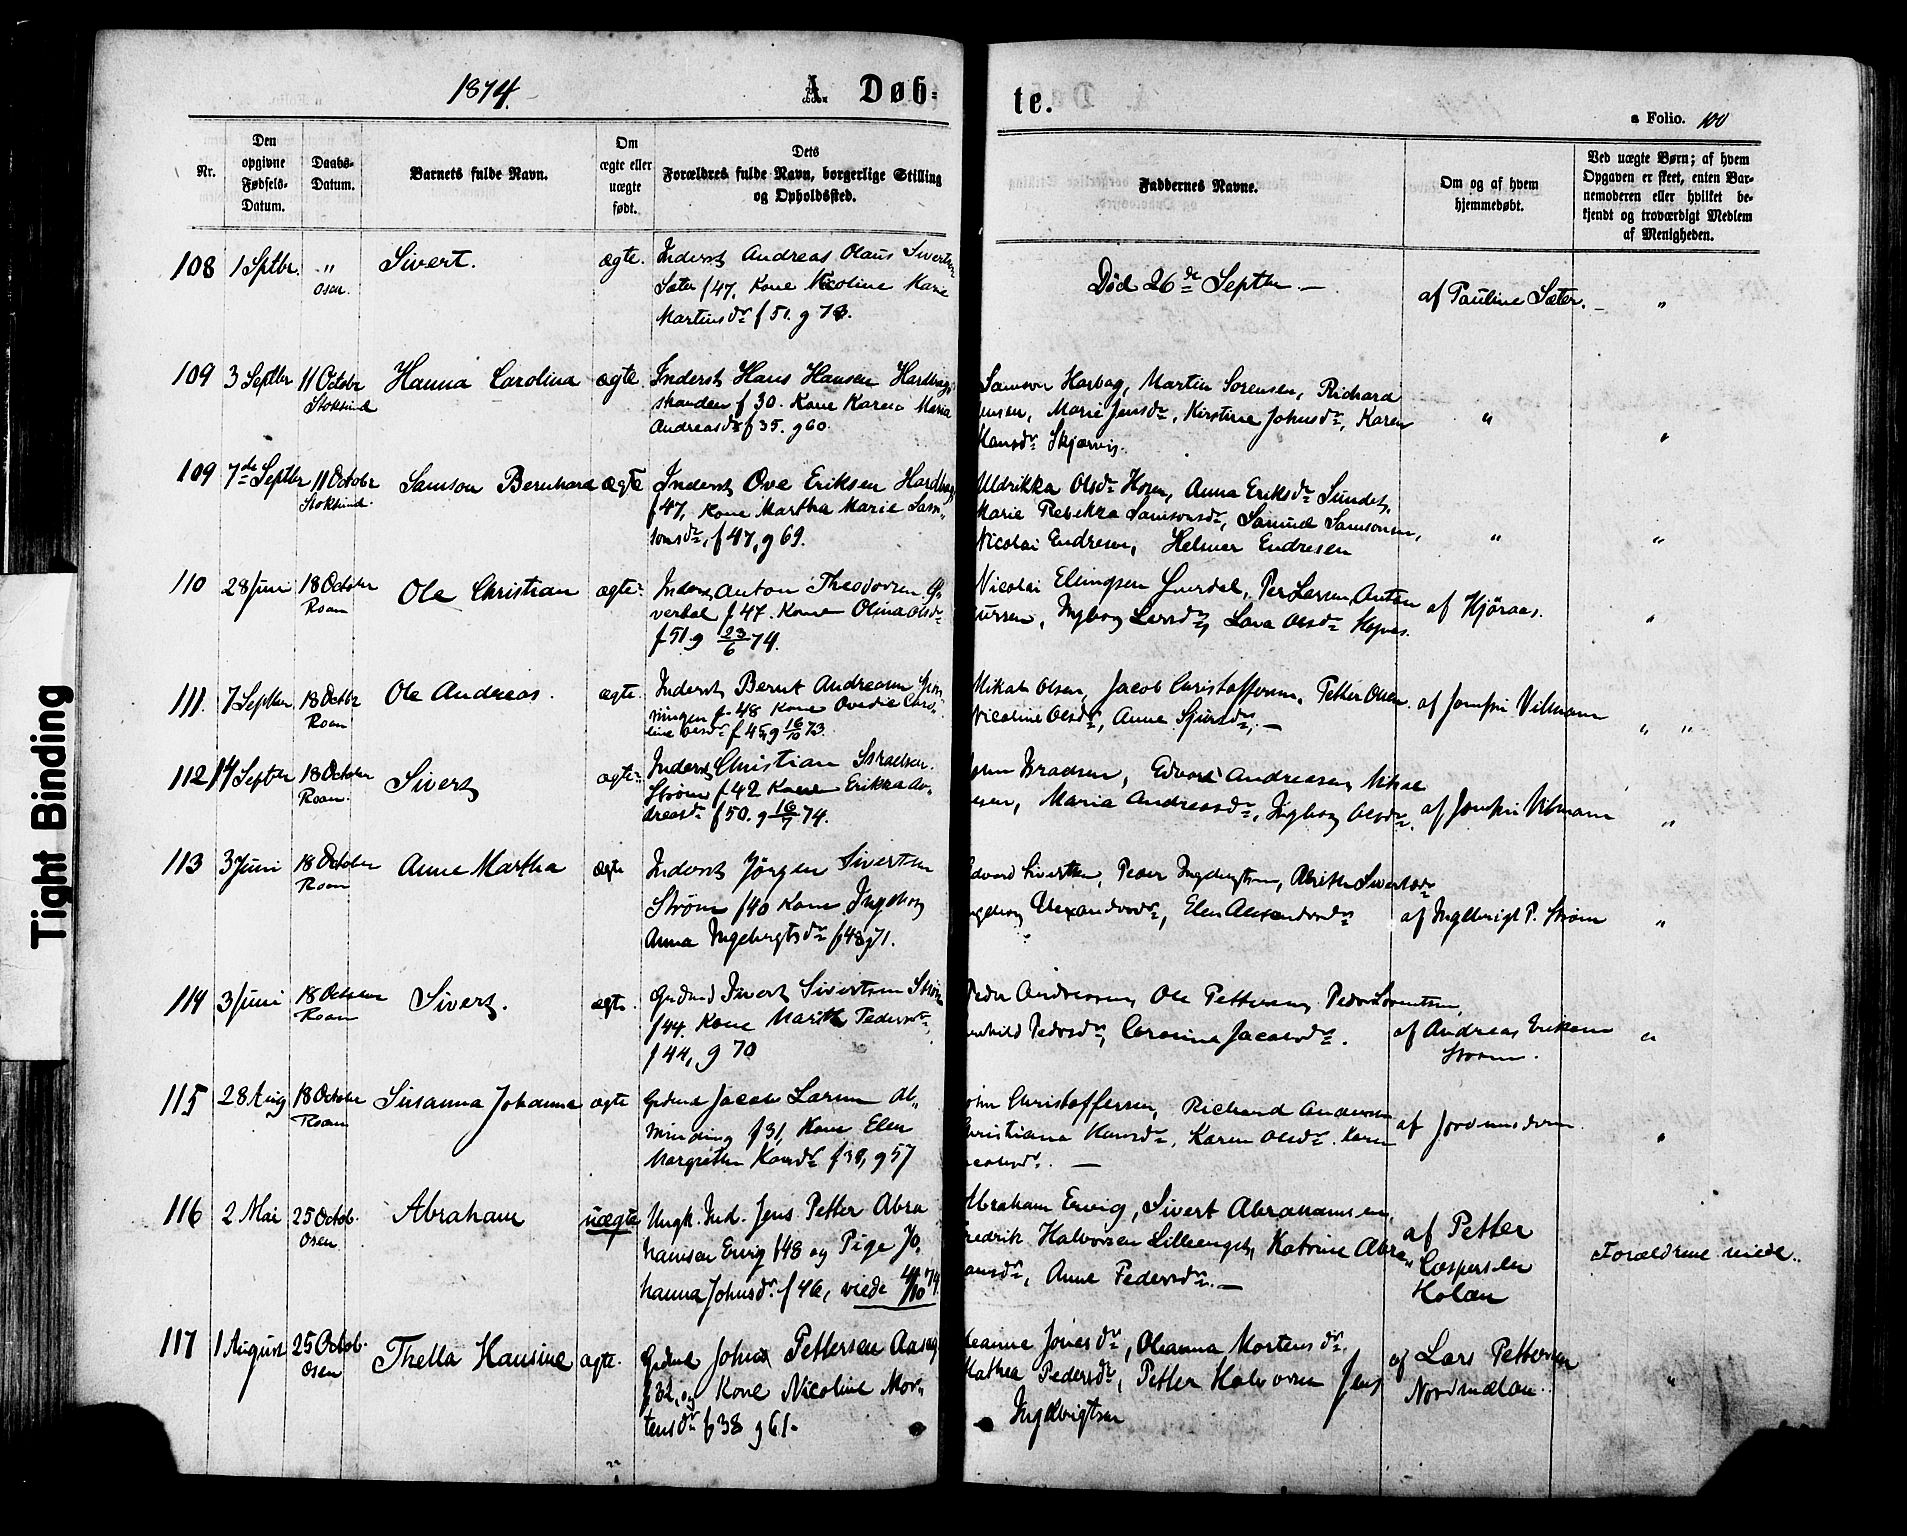 1874.
A. Døb-
te.
a Folio. 100
Nr.
Den
opgivne
Fødsels-
Datum.
Daabs-
Datum.
Barnets fulde Navn.
Om
ægte eller
uægte
født.
Dets
Forældres fulde Navn, borgerlige Stilling
og Opholdssted.
Faddernes Navne.
Om og af hvem
hjemmedøbt.
Ved uægte Børn; af hvem
Opgaven er skeet, enten Bar-
nemoderen eller hvilket be-
kjendt og troværdigt Medlem
af Menigheden.
108 1 Sptbr. " Sivert. ægte. Inderst Andreas Olaus
Osen.
Sæter f 47. Kone Nicoline Marie
Martinsdr f 51. g 73.
Død 26de Septbr. —
af Pauline Sæter. — "
109 3 Septbr 11 Octobr Hanna Carolina ægte. Inderst Hans Hansen
Stoksund
f 30. Kone Karen Maria
Andreasdr f 35. g 60.
Samson Harbag, Martin Sørensen, Richard
Marie Jensdr, Kirstine Johnsdr, Karen
Hansdr
" "
109 7de Septbr 11 Octobr Samson Bernhard ægte Inderst Ove Eriksen
Stoksund.
f 47, Kone Martha Marie Sam-
sonsdr, f 47, g 69.
Uldrikka Olsdr Anna Eriksdr Sundet,
Marie Rebekka Samsonsdr, Samuel Samsonsen,
Nicolai Endresen, Helmer Endresen
" "
110 28 Juni 18 October Ole Christian ægte. Inderst Anton Theodorsen
Roan
f 47. Kone Olina Olsdr
f 51 g 23/6 74.
Nicolai Per Larsen, Anton
Ingborg Larsdr, Olsdr
af Hjøraas. "
111. 7 Septber 18 Octbr Ole Andreas. ægte. Inderst Bernt Andreasen
Roan
f. 48 Kone
line Olsdr f 45, g 16/10 73.
Mikal Olsen, Jacob Christoffersen, Petter Olsen
Nicoline Olsdr, Anne Sjursdr, —
af Jomfru Vilmann
" "
112 14 Septber 18 October Sivert ægte. Inderst Christian Israelsen.
Roan.
Strøm f 42 Kone Erikka An-
dreasdr f 50. g 16/7 74.
Edvard Andreasen, Mikal
Maria Andreasdr, Ingborg Olsdr.
af Jomfru Vilmann "
113 3 Juni 18 October Anne Martha ægte Inderst Jørgen Sivertsen
Roan
Strøm f 40 Kone Ingeborg
Anna Ingebrigtsdr f 48 g 71.
Edvard Sivertsen, Peder Ingebrigtsen, Sivertsdr
Alexandersdr, Elen Alexandersdr
af Ingebrigt P. Strøm "
114 3 Juni 18 October Sivert. ægte. Sivert Sivertsen Strøm
Roan
f 44. Kone Marith Pedersdr
f 44, g 70
Peder Andreasen, Ole Pettersen, Peder Lorentsen,
Pedersdr, Jacobsdr.
af Andreas Eriksen
Strøm. "
115 28 Aug 18 October Susanna Johanna ægte Jacob Larsen Al-
Roan
minding f 31, Kone Elen
f 38, g 57
John Christoffersen, Richard Andersen
Christiana Hansdr, Karen Olsdr. Karen
Jacobsdr. —
af Jordmoderen. "
116 2 Mai 25 Octob. Abraham uægte Ungk. Ind. Jens Petter Abra
Osen
hamsen Ervig f 48 og Pige Jo-
hanna Johnsdr. f 46, viede 4/10 74.
Abraham Ervig, Sivert Abrahamsen,
Fredrik Halvorsen Lilleenget, Katrine Abra-
hamsdr, Anne Pedersdr. —
af Petter
Caspersen
Holan
Forældrene viede.
117 1 August 25 Octob. Thella Hansine ægte. Johan Pettersen Aasegg
Osen
f 32, og Kone Nicoline Mor-
tensdr f 38 g 61.
Jonesdr, Oleanna Mortensdr.
Mathea Pedersdr, Petter Halvorsen Jens
Ingebrigtsen
af Lars Pettersen
Nordmelan. "
Tight Binding